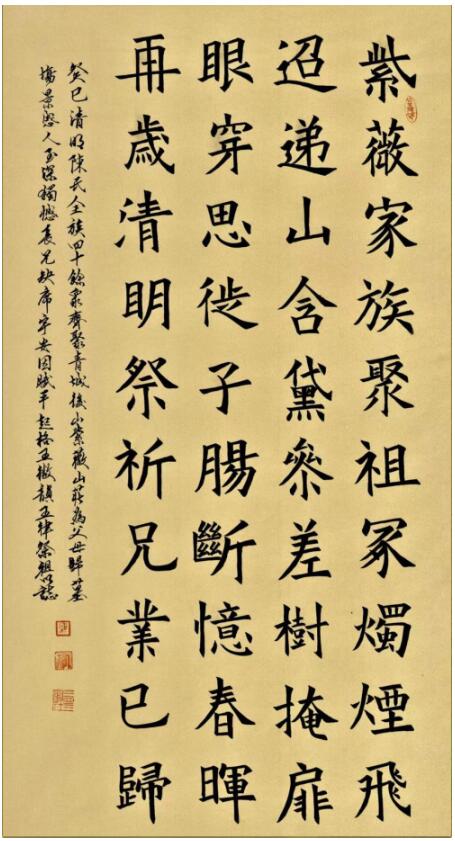 紫薇家族聚祖冢燭煙飛
迢递山含黛叅差樹掩扉
眼穿思徙子腸斷憶春暉
再歲清明祭祈兄業已歸
癸巳清明陳氏全族四十餘衆齊聚青城後山紫薇山莊為父母歸墓
場景感人至深獨憾長兄缺席宇安因賦平起格五微韻五律祭祖以誌